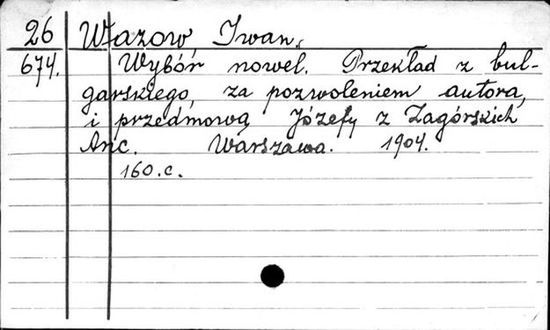 26 Wazow, Iwan.
674. Wybór nowel. Przekład z buł-
garskiego, za pozwoleniem autora,
i przedmową Józefy z Zagórskich
Anc. Warszawa. 1904.
160.c.